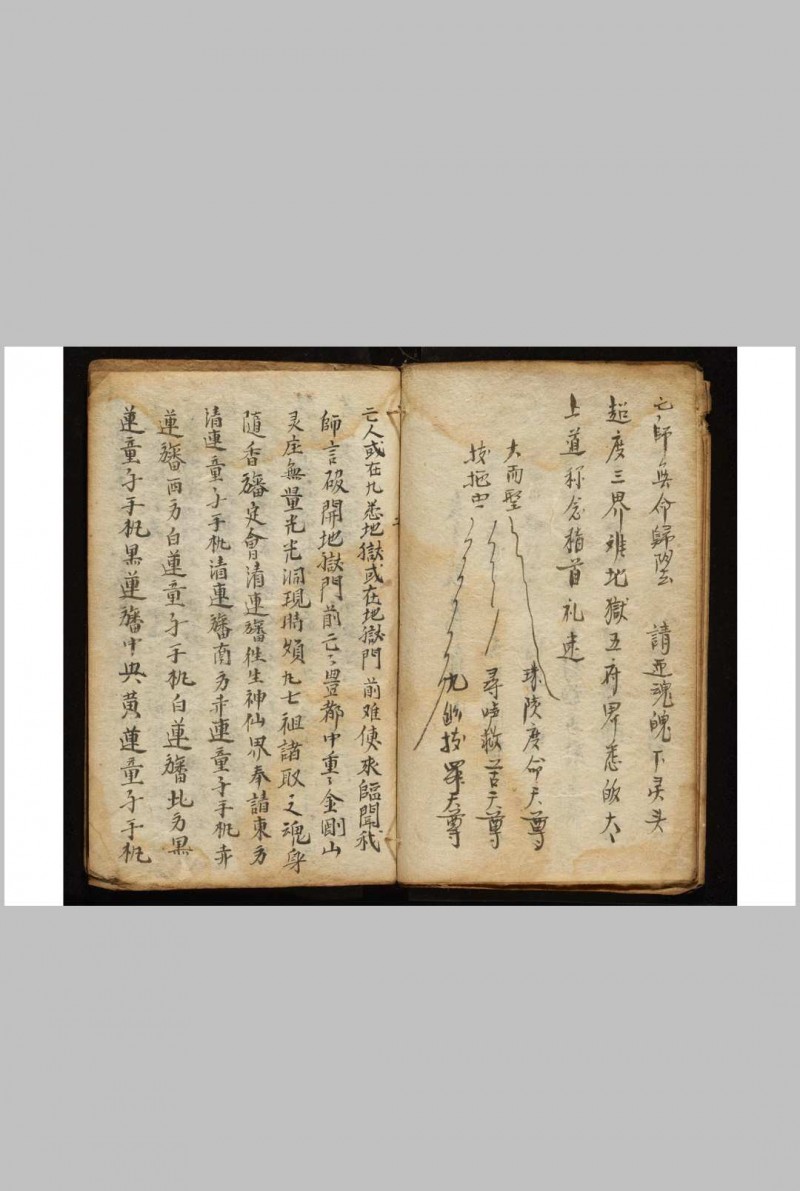 亡師無命歸壂 請亚魂魄下灵头
超度三界难地獄五府界悉皈太〻
上道称念稽首礼速
大而聖 珠陵度命天尊
尋声救苦天尊
九幽拔罪天尊
亡人或在九悉地獄或在地獄門前难使來臨聞我
師言破開地獄門前亡〻豊都中重〻金剛山
灵座無量光光洞現時頻九七祖諸取之魂身
隨香旛定會清連旛徃生神仙界奉請東方
清連童子手执清連旛南方赤連童子手执赤
蓮旛西方白蓮童子手执白蓮旛北方黑
蓮童子手执黑蓮旛中央黄蓮童子手执